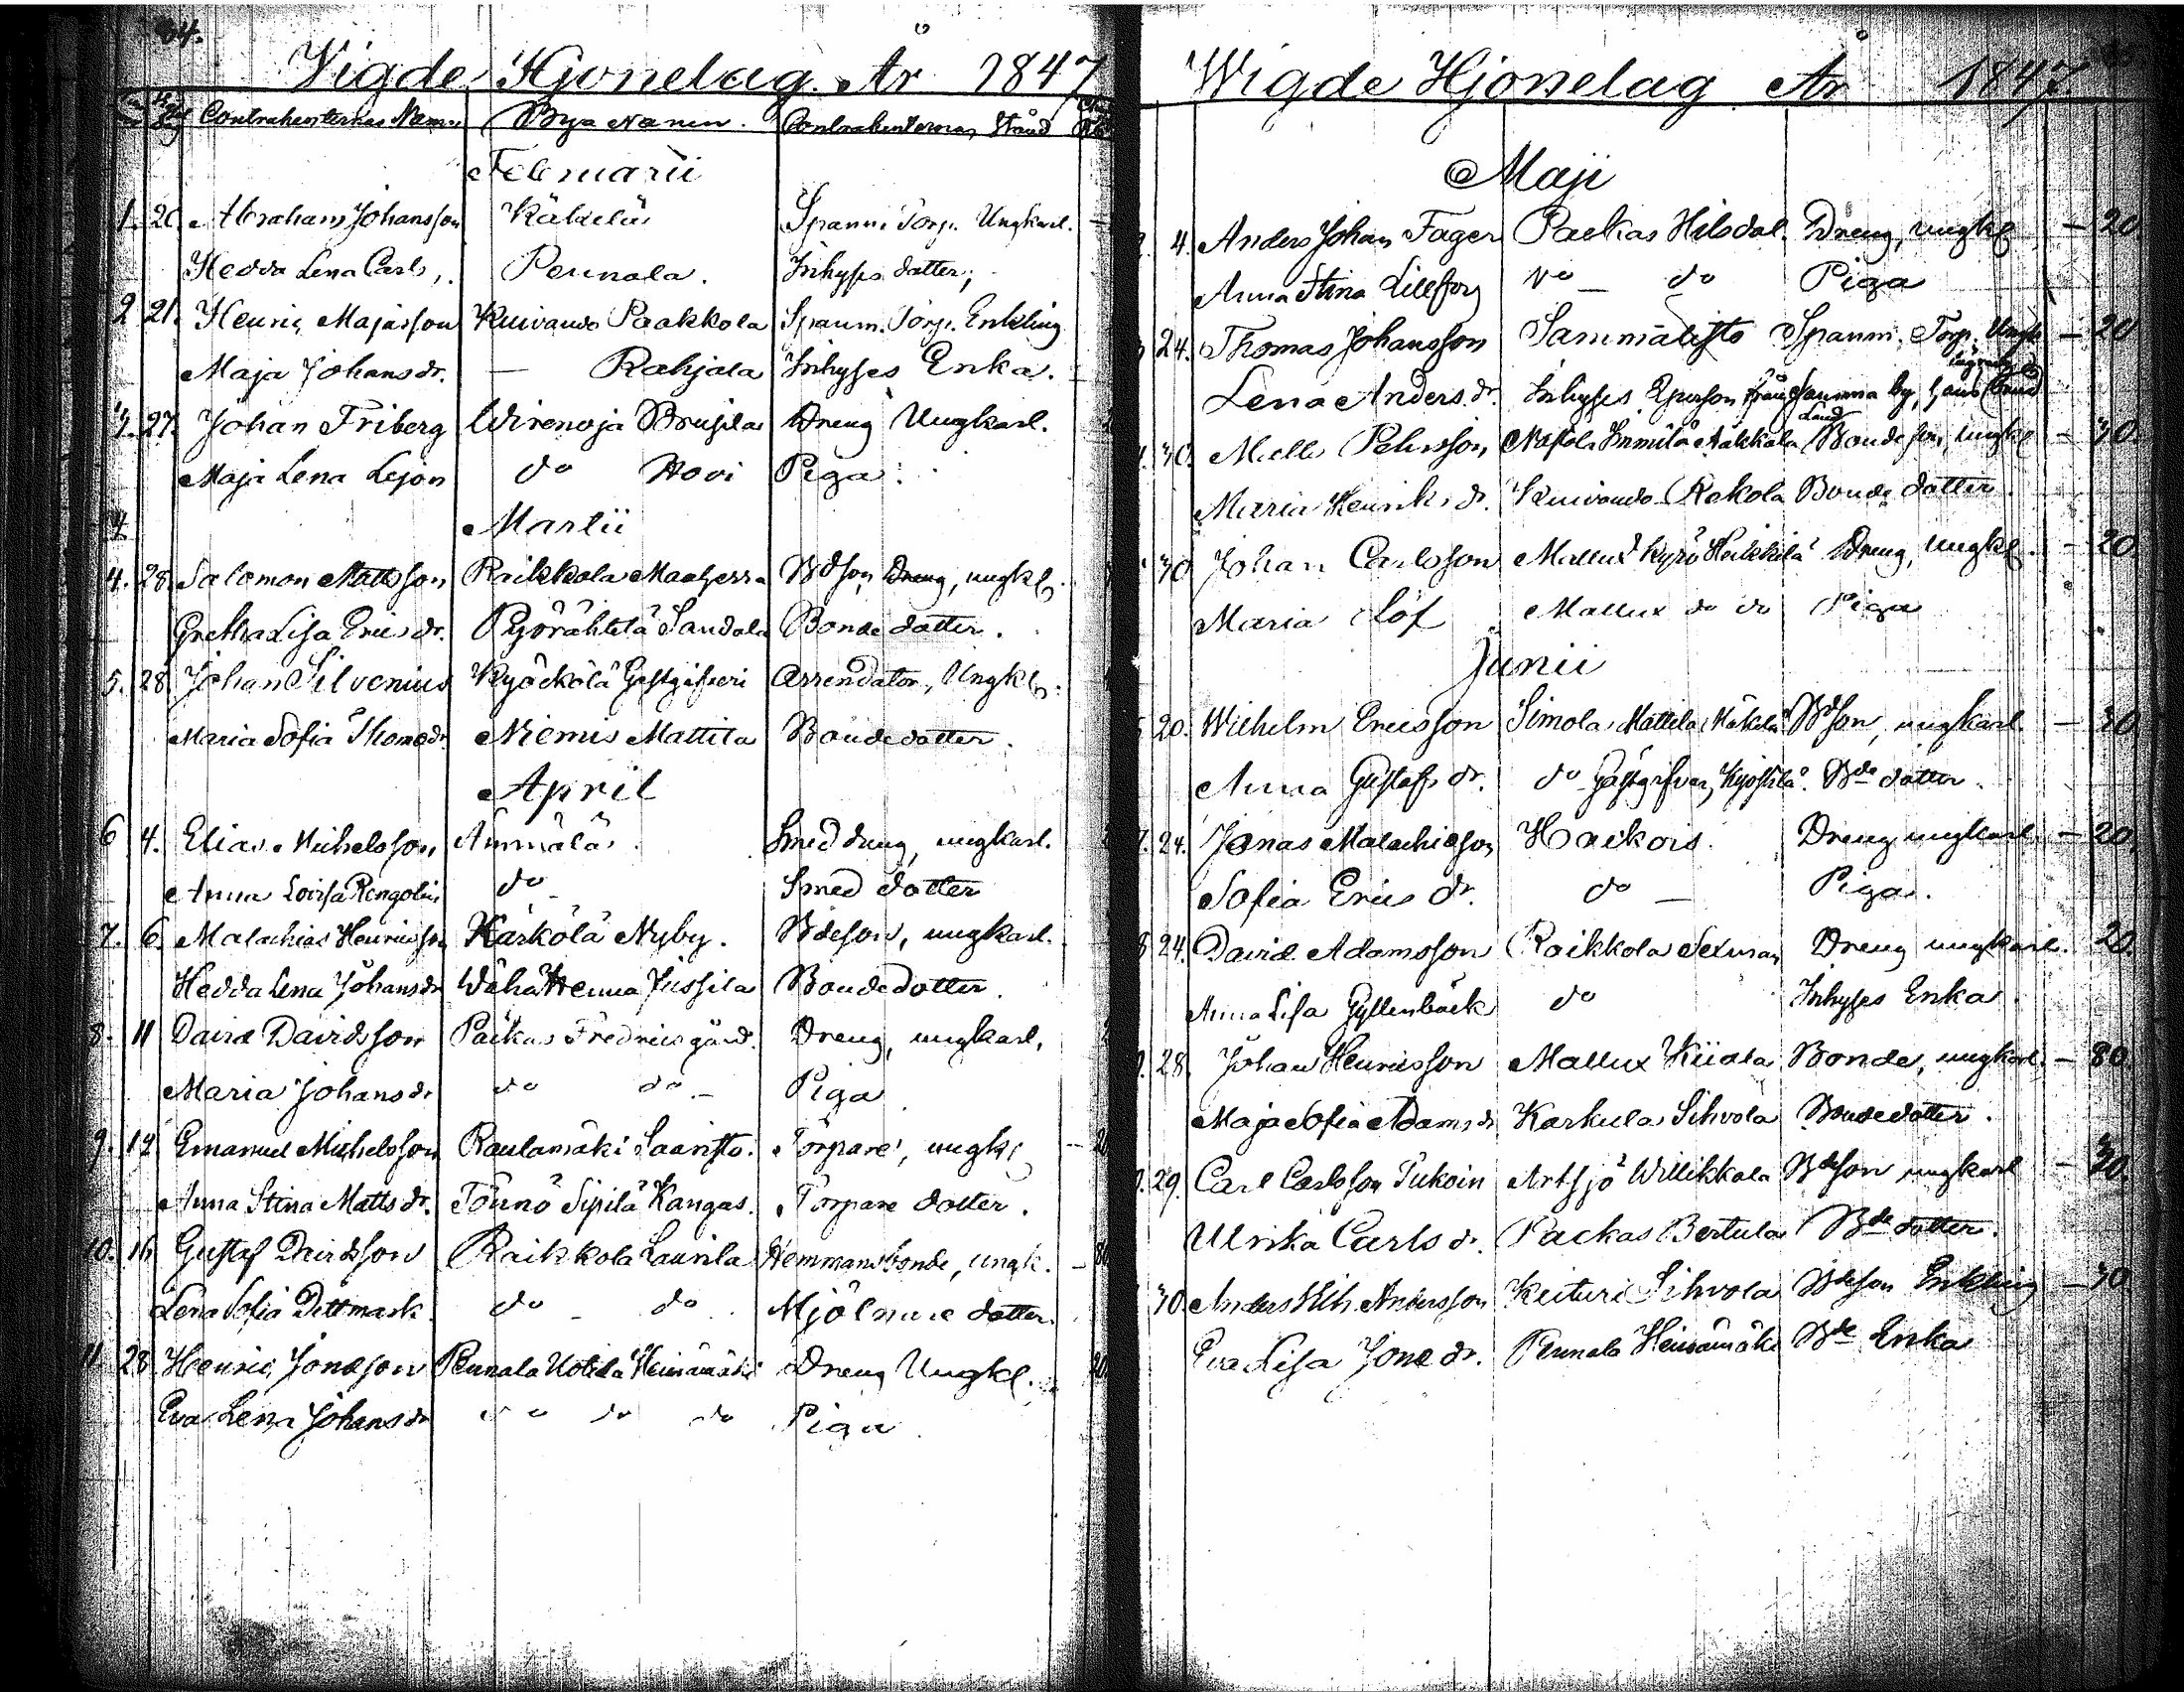 84.
Vigde Hjonelag År 1847
Contrahenternas Namn Bya Namn. Contrahenternas Stånd
Februarii
1. 20. Abraham Johansson Käkelä Spanm. Torp. Ungkarl.
Hedda Lena Carls, Pennala. Inhyses dotter,
2 21. Henric Majasson Kuivando Paakkola Spanm. Torp. Enkling
Maja Johans dr. — Rahjala Inhyses Enka.
3. 27. Johan Friberg Wirenoja Brusila Dreng Ungkarl.
Maja Lena Lejon do Hovi Piga
4
Martii
4. 28. Salomon Mattsson Raikkola Maaherra Bdson Dreng, ungkl.
Gretha Lisa Erics dr. Pyörähtelä Sandala Bonde dotter.
5. 28 Johan Silvenius Kyöckölä Gestgifveri Arrendator, Ungkl.
Maria Sofia Thomædr. Niemis Mattila Bondedotter.
April
6 4. Elias Michelsson Ämmälä Smed dreng, ungkarl.
Anna Lovisa Rengolin do Smed dotter
7. 6. Malachias Henricsson Kärkölä Nyby. Bdeson, ungkarl.
Hedda Lena Johansdr Wähä Henna Jussila Bondedotter.
8. 11 David Davidsson Päckas Fredricsgård. Dreng, ungkarl.
Maria Johans dr do do Piga
9. 12 Emanuel Michelsson Rautamäki Saaristo. Torpare, ungkl
Anna Stina Matts dr. Tönnö Sipilä Kangas. Torpare dotter.
10. 16 Gustaf Davidsson Raikkola Laurila Hemmansbonde, ungk.
Lena Sofia Dittmark do do Mjölnare dotter.
11. 28 Henric Jonasson Pennala Uotila Heinämäki Dreng Ungkl.
Eva Lena Johans dr do do do Piga
Wigde Hjonelag År 1847.
Maji
4. Anders Johan Fager Packas Hilsdal. Dreng, ungkl — 20
Anna Stina Lillfors do — do Piga
24. Thomas Johansson Sammalisto Spanm. Torp. Ungk — 20
Lena Anders dr. Inhyses Qperson från samma by, hans
30. Matts Pehrsson Bonde son, ungkl — 30.
Maria Henriks dr. Kuivando Rekola Bonde dotter.
30 Johan Carlsson Mallux Kyrö Heikkilä Dreng, ungkl. — 20
Maria Löf Mallux do do Piga
Junii
20. Wilhelm Ericsson Simola Mattila Mäkelä Bdson, ungkarl. — 30
Anna Gustafs dr. do Gästgifveri, Kyöstilä. Bde dotter.
24. Jonas Malachiasson Hackois. Dreng ungkarl — 20.
Sofia Erics dr. do — Piga.
8 24. David Adamsson Raikkola Selman Dreng ungkarl. 20.
Anna Lisa Gyllenbäck do Inhyses Enka
28. Johan Henricsson Mallux Kiiala Bonde, ungkarl. — 80.
Maja Sofia Adams dr Karkula Sihvola Bondedotter.
29. Carl Carlsson Tukoin Artsjö Willikkala Bdeson ungkarl — 30.
Ulrika Carls dr. Packas Bertula Bde dotter.
30. Anders Wilh. Andersson Keituri Sihvola Bdeson Enkling — 30
Eva Lisa Jonæ dr. Pennala Heinämäki Bde Enka